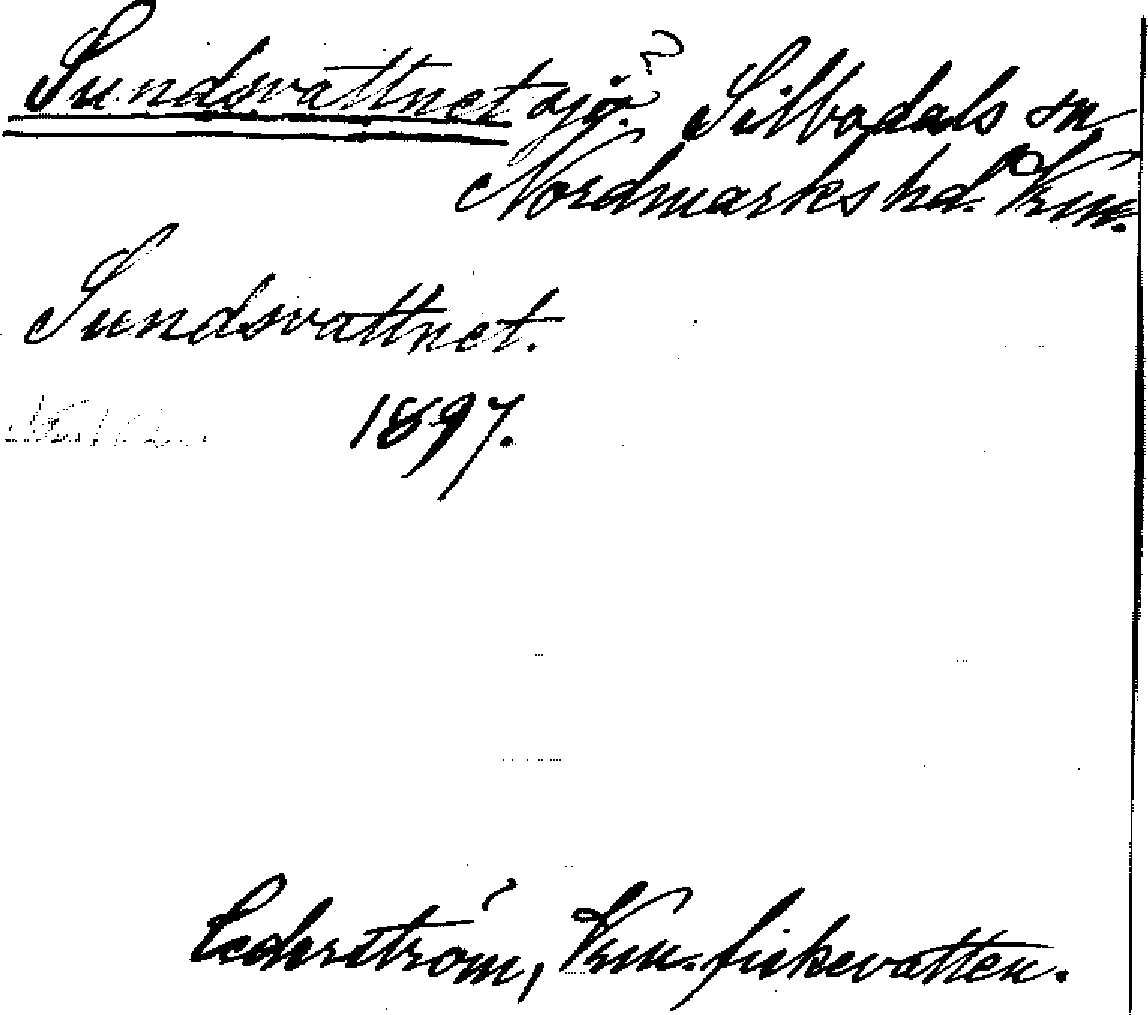 Sundsvattnet sjö. Silbodals sn
Nordmarks hd. Vrm.
Sundsvattnet.
1897.
Cederström, Vrm. fiskevatten.